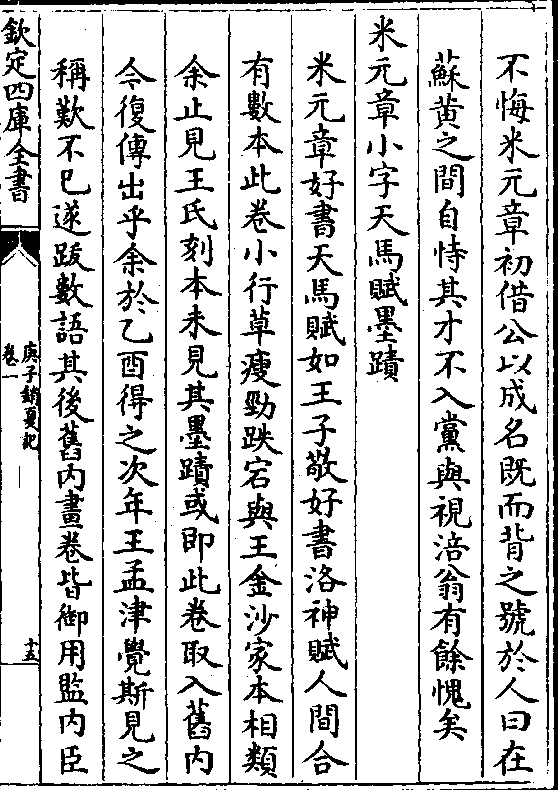 不悔米元章初借公以成名既而背之號於人曰在
蘇黄之間自恃其才不入黨與視涪翁有餘愧矣
米元章小字天馬賦墨蹟
米元章好書天馬賦如王子敬好書洛神賦人間合
有數本此卷小行草瘦勁跌宕與王金沙家本相類
余止見王氏刻本未見其墨蹟或即此卷取入舊内
今復傳出乎余於乙酉得之次年王孟津覺斯見之
稱歎不已遂跋數語其後舊内畫卷皆御用監内臣
欽定四庫全書
庚子銷夏記
卷一
十五